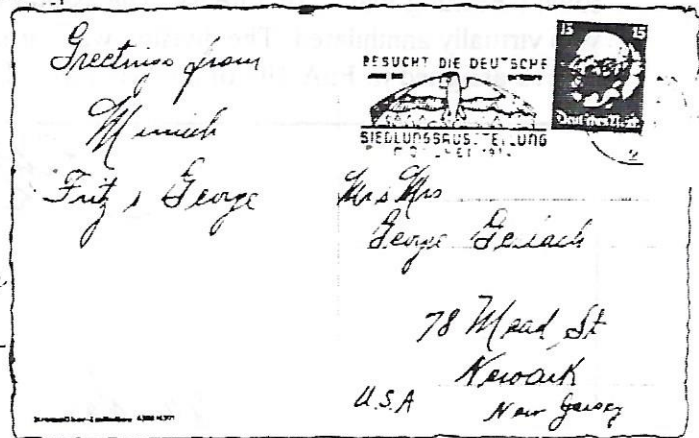 Greetings from
Munich
Fritz & George
BESUCHT DIE DEUTSCHE
SIEDLUNGSAUSSTELLUNG
15 15
Deutsches Reich
Mrs
George
78 Mead St
Newark
U.S.A New Jersey